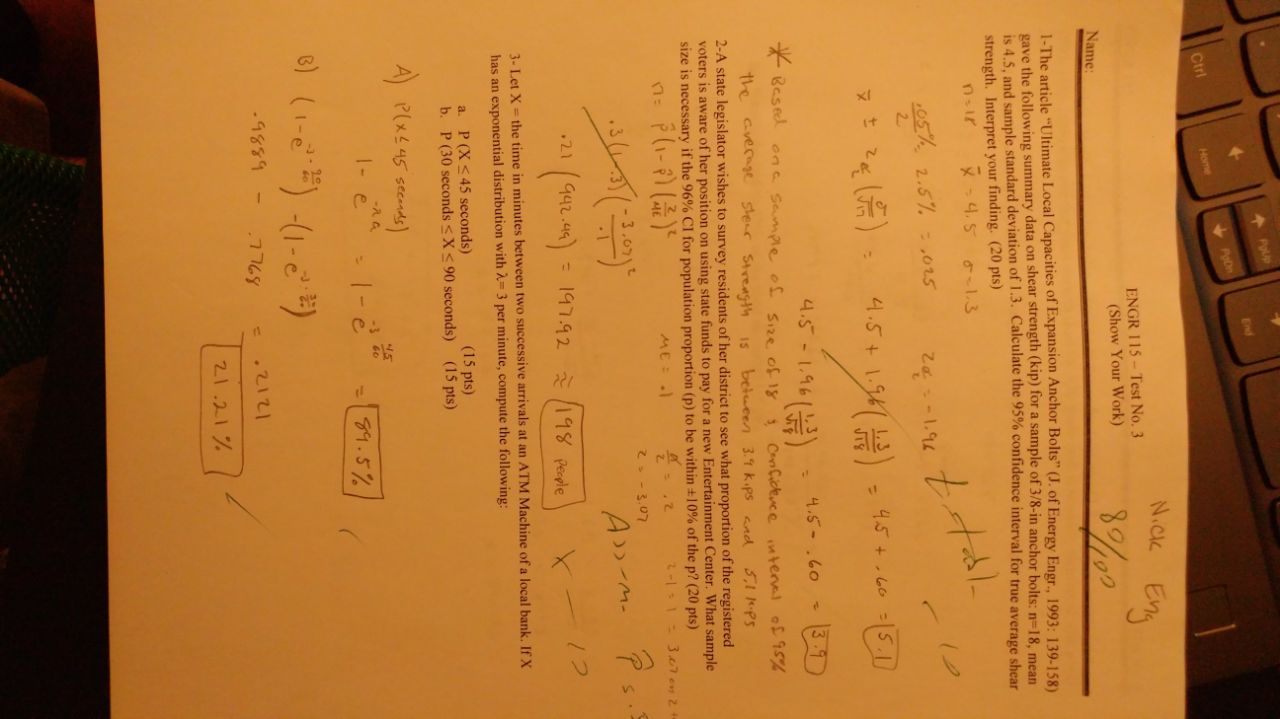 PgUp
End
Ctrl
Home
PgDn
Nick Eng
ENGR 115 – Test No. 3
(Show Your Work)
80/100
Name:
1-The article “Ultimate Local Capacities of Expansion Anchor Bolts” (J. of Energy Engr., 1993: 139-158)
gave the following summary data on shear strength (kip) for a sample of 3/8-in anchor bolts: n=18, mean
is 4.5, and sample standard deviation of 1.3. Calculate the 95% confidence interval for true average shear
strength. Interpret your finding. (20 pts)
n=18 x̄ = 4.5 σ=1.3
t-tabl
- 10
.05%/2 2.5% = .025 Zα/2 = -1.96
x̄ ± Zα/2 (σ/√17) = 4.5 + 1.96 (1.3/√18) = 4.5 + .60 = 5.1
4.5 - 1.96 (1.3/√18) = 4.5 - .60 = 3.9
* Based on a sample of size of 18 & confidence interval of 95%
the average shear strength is between 3.9 kips and 5.1 kips
2-A state legislator wishes to survey residents of her district to see what proportion of the registered
voters is aware of her position on using state funds to pay for a new Entertainment Center. What sample
size is necessary if the 96% CI for population proportion (p) to be within ±10% of the p? (20 pts)
n = p̂(1-p̂)(z/ME)² ME = .1 α/2 = .2
z = -3.07
.3(1-.3)(-3.07/.1)²
p̂
.21 (942.49) = 197.92 ≈ 198 people
X - 10
3- Let X = the time in minutes between two successive arrivals at an ATM Machine of a local bank. If X
has an exponential distribution with λ= 3 per minute, compute the following:
a. P (X ≤ 45 seconds) (15 pts)
b. P (30 seconds ≤ X ≤ 90 seconds) (15 pts)
A) P(x≤45 seconds)
1-e^-λa = 1-e^-3 45/60 = 89.5%
B) (1-e^-3·90/60) -(1-e^-3·30/60)
.9889 - .7768 = .2121
21.21%